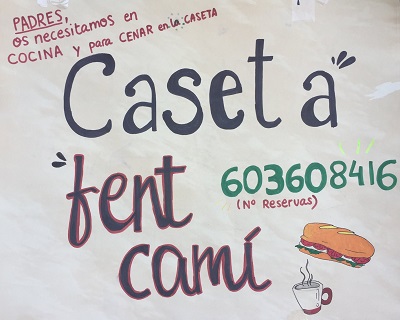 PADRES,
os necesitamos en
COCINA y para CENAR en la CASETA
Caseta
fent
camí
603608416
(Nº Reservas)